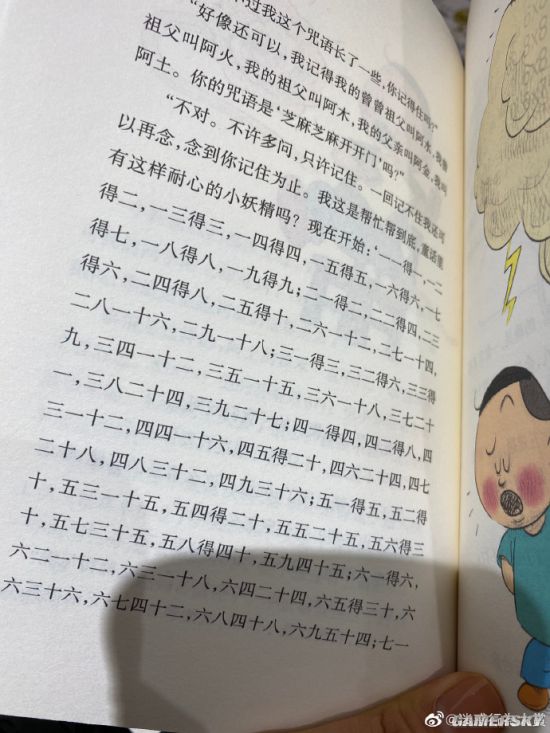 不过我这个咒语长了一些，你记得住吗？”
“好像还可以，我记得我的曾曾祖父叫阿水，我曾
祖父叫阿火，我的祖父叫阿木，我的父亲叫阿金，我叫
阿土。你的咒语是‘芝麻芝麻开开门’吗？”
“不对。不许多问，只许记住。一回记不住我还可
以再念，念到你记住为止。我这是帮忙帮到底，童话里
有这样耐心的小妖精吗？现在开始：‘一一得一，一二
得二，一三得三，一四得四，一五得五，一六得六，一七
得七，一八得八，一九得九；二一得二，二二得四，二三
得六，二四得八，二五得十，二六一十二，二七一十四，
二八一十六，二九一十八；三一得三，三二得六，三三得
九，三四一十二，三五一十五，三六一十八，三七二十
一，三八二十四，三九二十七；四一得四，四二得八，四
三一十二，四四一十六，四五得二十，四六二十四，四七
二十八，四八三十二，四九三十六；五一得五，五二得
十，五三一十五，五四得二十，五五二十五，五六得三
十，五七三十五，五八得四十，五九四十五；六一得六，
六二一十二，六三一十八，六四二十四，六五得三十，六
六三十六，六七四十二，六八四十八，六九五十四；七一
@迷惑行为大赏
GAMERSKY